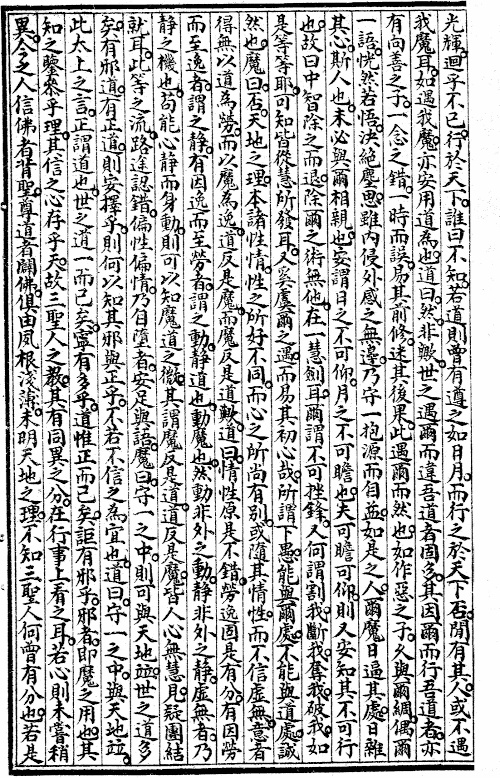 光輝迴乎不已行於天下誰曰不知若道則曾有遵之如日月而行之於天下否間有其人或不遇
我魔耳如遇我魔亦安用道為也道曰然非斁世之遇爾而違吾道者固多其因爾而行吾道者亦
有向善之子一念之錯一時而誤易其前修迷其後果此遇爾而然也如作惡之子久與爾綢偶爾
一語恍然若悟決絕塵思雖內侵外感之無邊乃守一抱源而自並如是之人爾魔日逼其處日雜
其心斯人也未必與爾相親也妄謂日之不可仰月之不可瞻也夫可瞻可仰則又安知其不可行
也故曰中智除之而退除爾之術無他在一慧劍耳爾謂不可挫鋒又何謂割我斷我奪我破我如
是等等耶可知皆從慧所發耳又奚虞爾之遇而易其初心哉所謂下愚能與爾處不能與道處誠
然也魔曰否天地之理本諸性情性之所好不同而心之所尚有別或隨其情性而不信虛無意者
得無以道為勞而以魔為逸道反是魔而魔反是道歟道曰情性原是不錯勞逸固是有分有因勞
而至逸者謂之靜有因逸而至勞者謂之動靜道也動魔也然動非外之動靜非外之靜虛無者乃
靜之機也苟能心靜而身動則可以知魔道之微其謂魔反是道道反是魔皆人心無慧見疑團結
就耳此等之流路途認錯偏性偏情乃自墮者安足與語魔曰守一之中則可與天地並世之道多
矣有邪道有正道則安擇乎則何以知其邪與正乎不若不信之為宜也道曰守一之中與天地並
此太上之言正謂道也世之道一而已矣寧有多乎道惟正而已矣詎有邪乎邪者即魔之用也其
知之鑒泰乎理其信之心存乎天故三聖人之教其有同異之分在行事上看之耳若心則未嘗稍
異今之人信佛者背聖尊道者闢佛俱由夙根淺薄未明天地之理不知三聖人何曾有分也若是